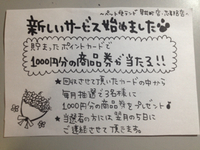 新しいサービス始めました
貯まったポイントカードで
1000円分の商品券が当たる!!
★回収させて頂いたカードの中から
毎月抽選で3名様に
1000円分の商品券をプレゼント
★当選者の方には翌月の5日に
ご連絡させて頂きます。